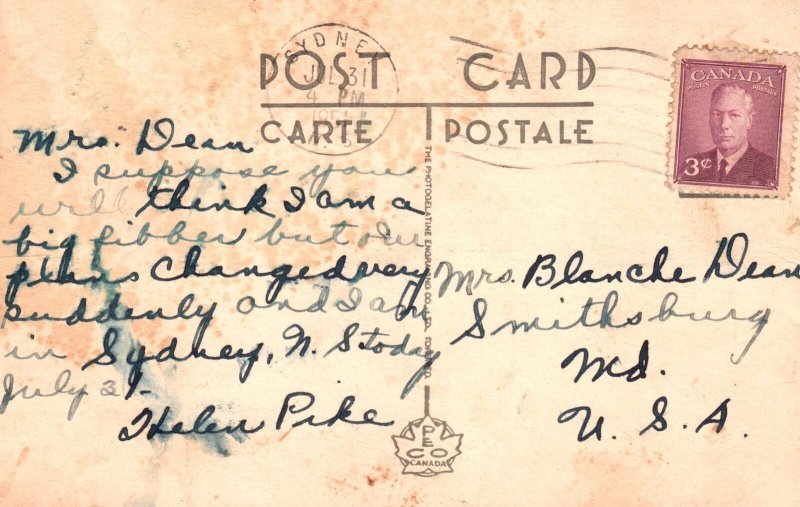 SYDNEY
JUL 31
4 PM
POST CARD
CARTE POSTALE
CANADA
POSTES POSTAGE
3¢
Mrs. Dean
I suppose you
will think I am a
big fibber but our
plans changed very
suddenly and I am
in Sydney, N. S. today
July 31-
Helen Pike
THE PHOTOGELATINE ENGRAVING CO. LTD. TORONTO
PECO
CANADA
Mrs. Blanche Dean
Smithsburg
Md.
U. S. A.